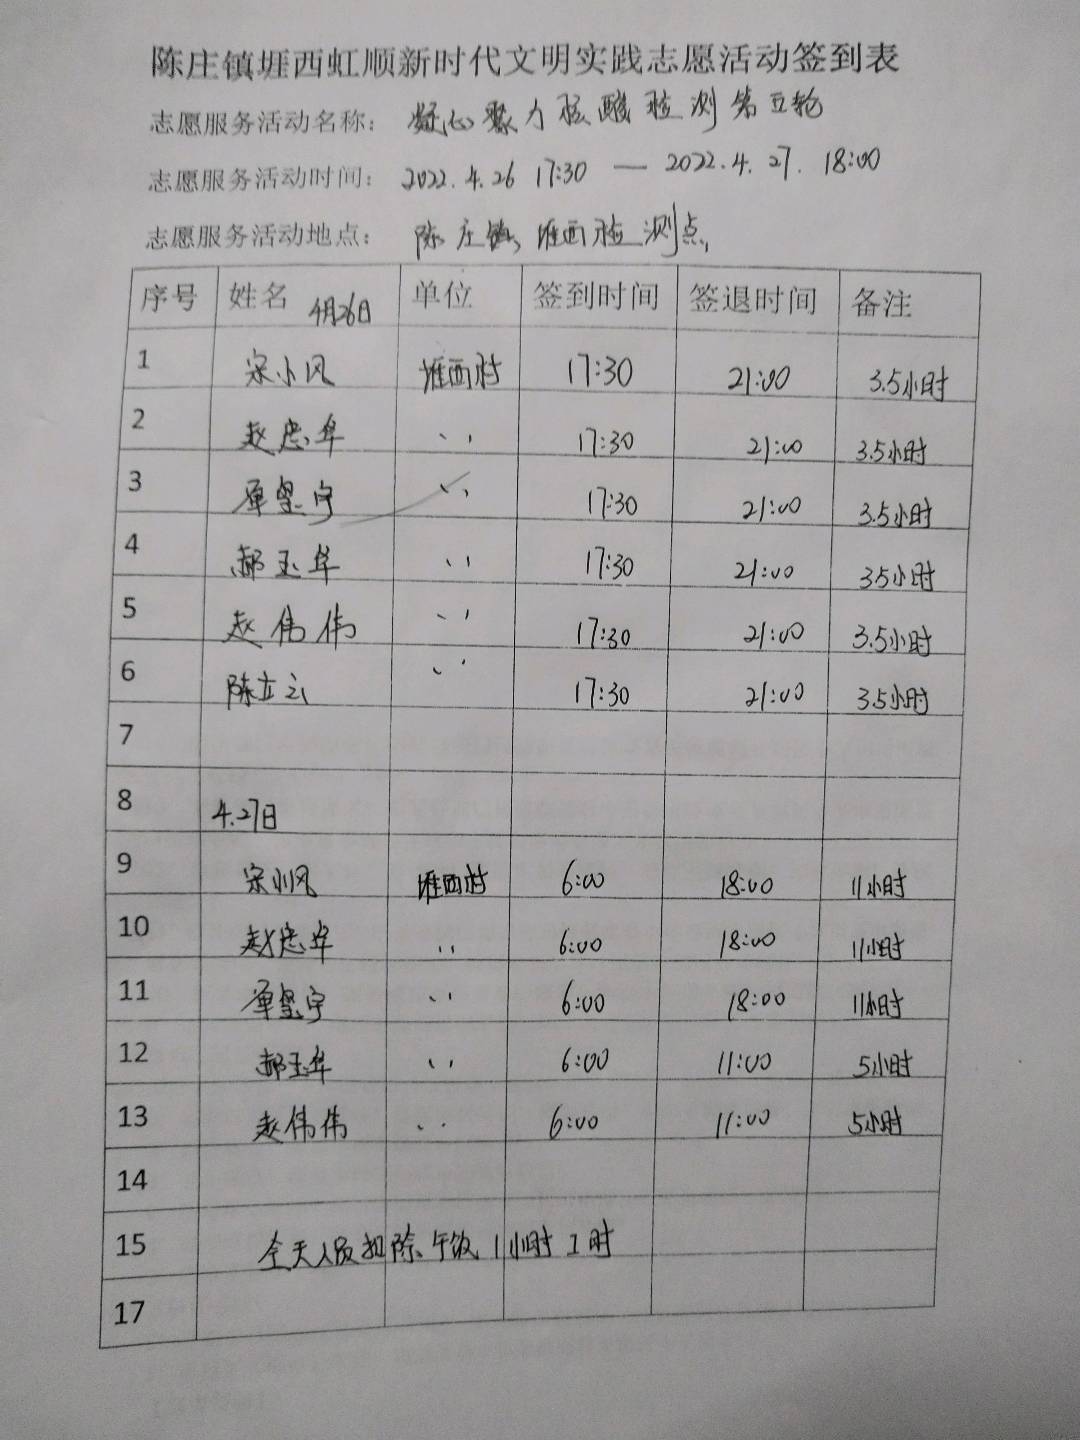 陈庄镇堐西虹顺新时代文明实践志愿活动签到表
志愿服务活动名称：凝心聚力核酸检测第五轮
志愿服务活动时间：2022.4.26 17:30 — 2022.4.27. 18:00
志愿服务活动地点：陈庄镇堐西检测点
序号 姓名 4月26日 单位 签到时间 签退时间 备注
1 宋小风 堐西村 17:30 21:00 3.5小时
2 赵忠华 〃 17:30 21:00 3.5小时
3 宇 〃 17:30 21:00 3.5小时
4 郝玉华 〃 17:30 21:00 3.5小时
5 赵伟伟 〃 17:30 21:00 3.5小时
6 陈立云 〃 17:30 21:00 3.5小时
7
8 4.27日
9 宋小风 堐西村 6:00 18:00 11小时
10 赵忠华 〃 6:00 18:00 11小时
11 宇 〃 6:00 18:00 11小时
12 郝玉华 〃 6:00 11:00 5小时
13 赵伟伟 〃 6:00 11:00 5小时
14
15 全天人员扣除午饭1小时工时
17